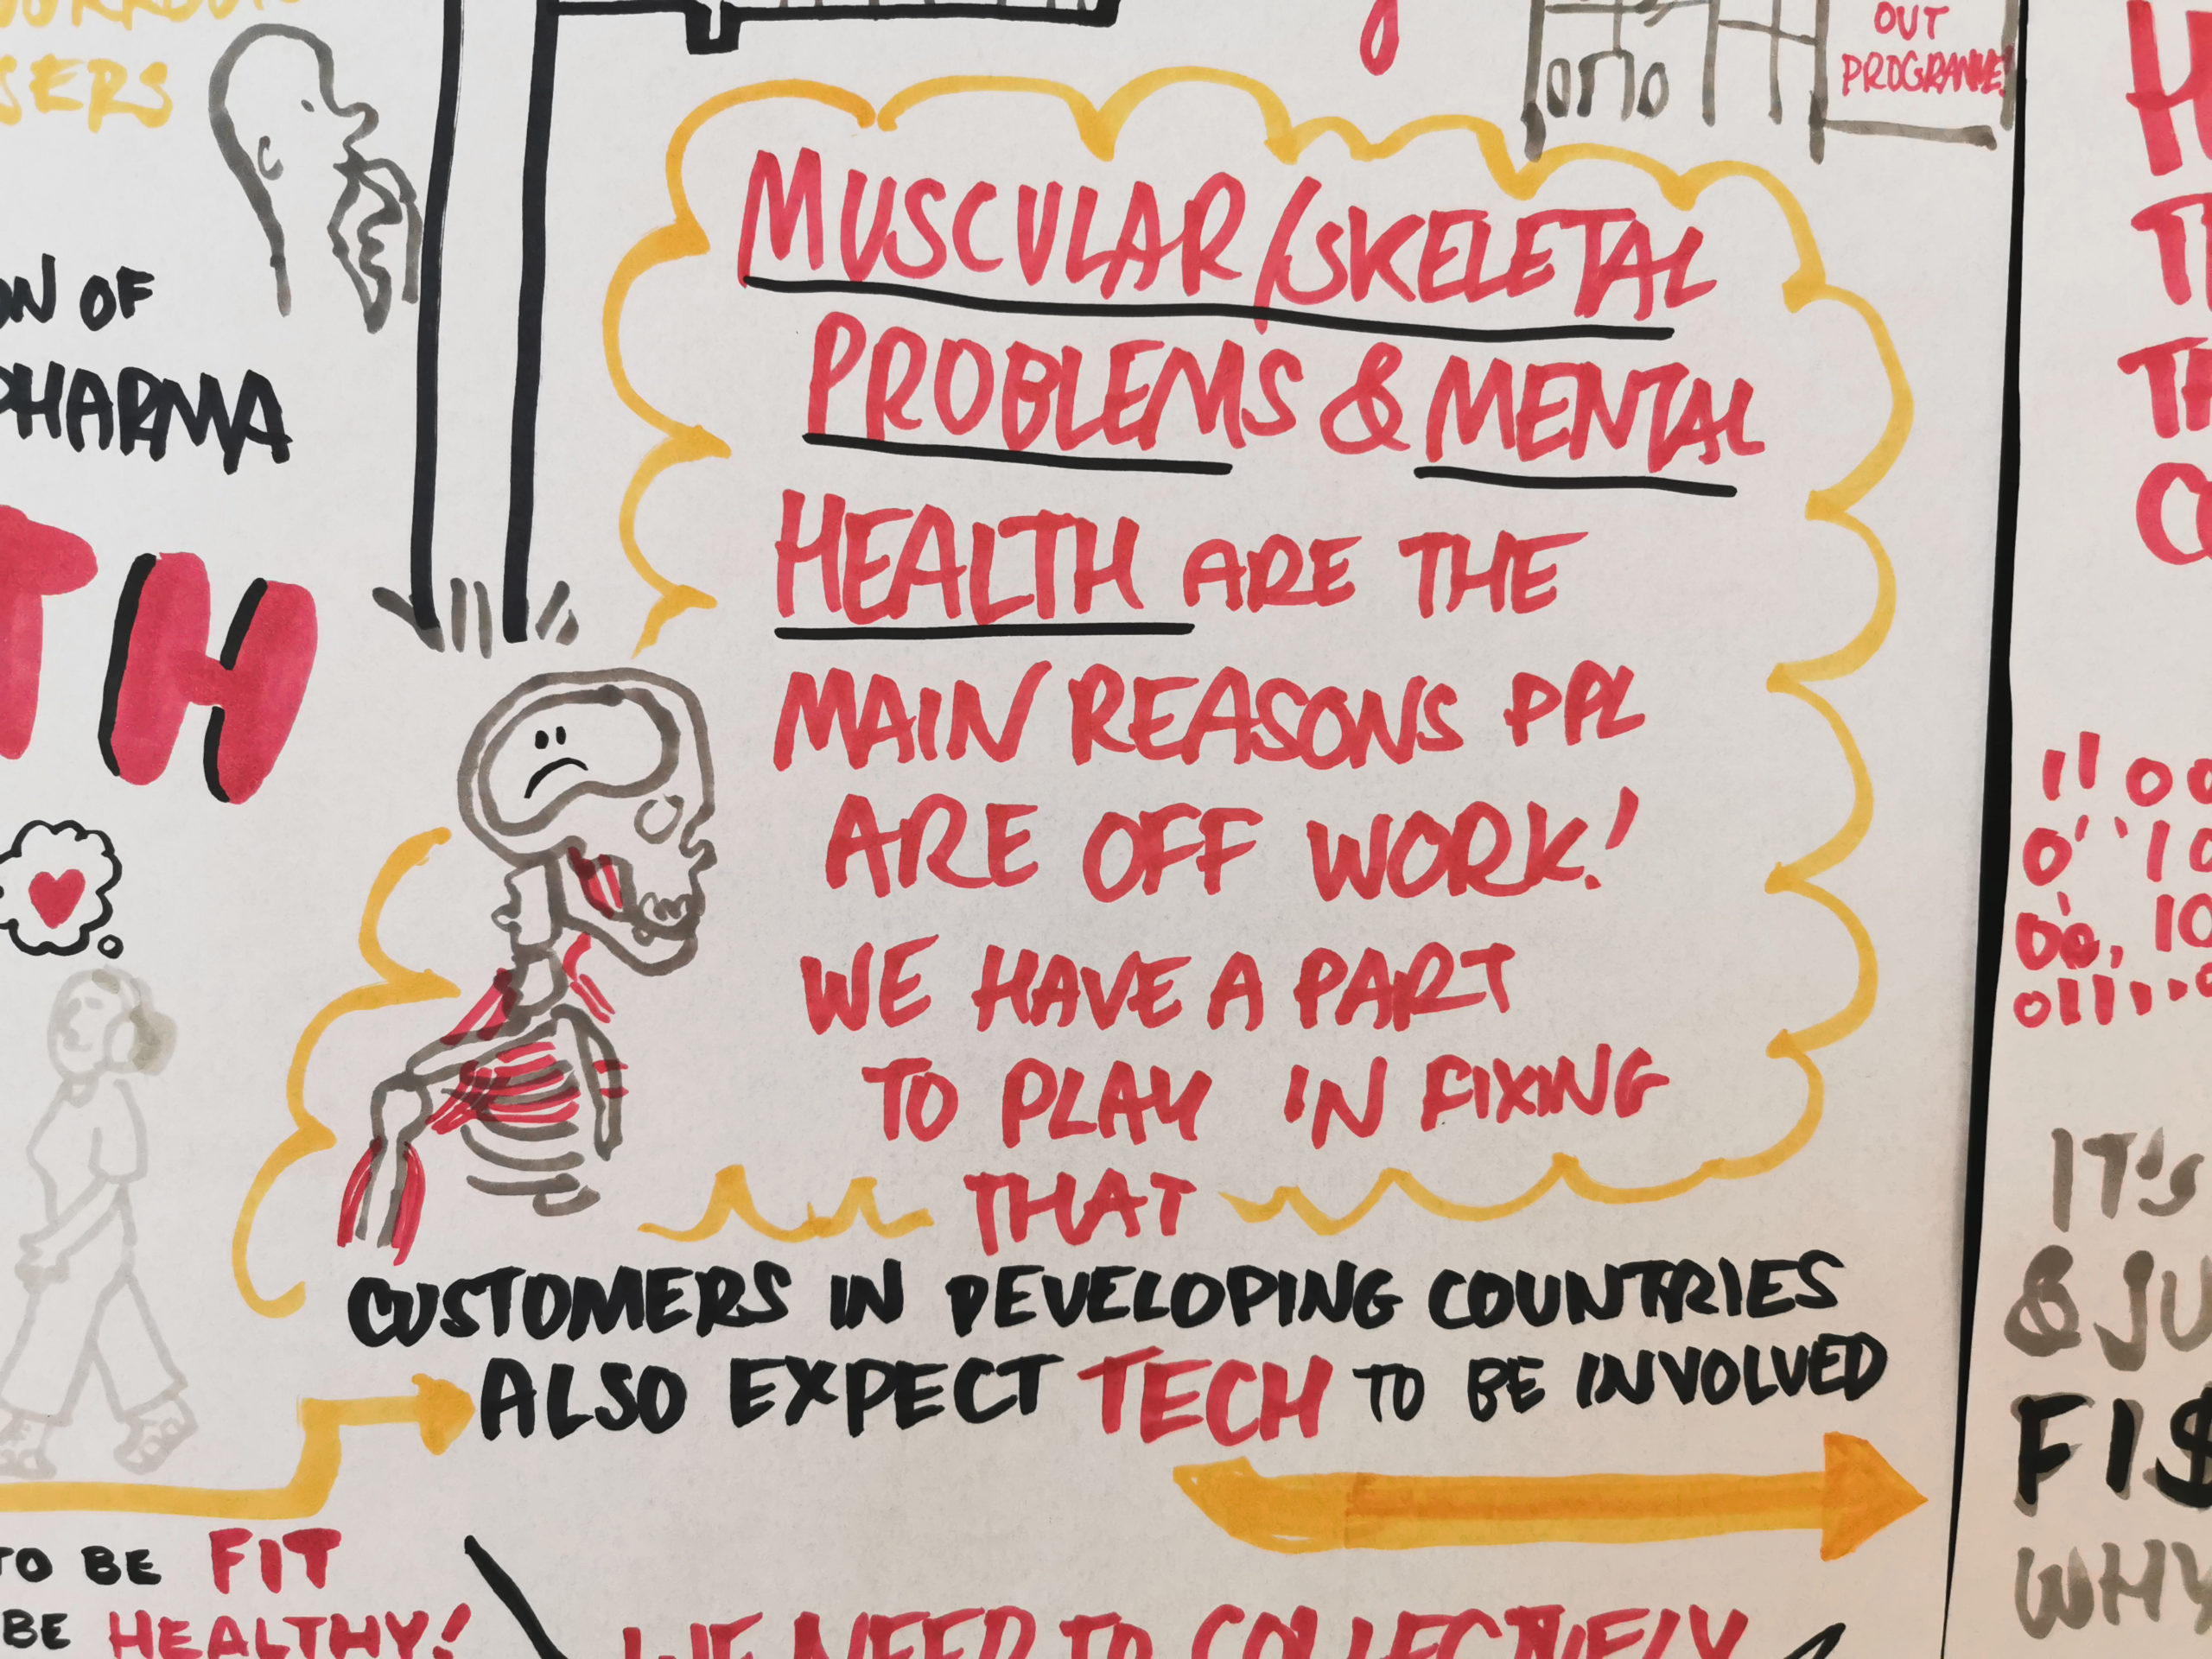 SERS
OUT
PROGRAMME!
ON OF
PHARMA
TH
MUSCULAR/SKELETAL
PROBLEMS & MENTAL
HEALTH ARE THE
MAIN REASONS PPL
ARE OFF WORK!
WE HAVE A PART
TO PLAY IN FIXING
THAT
CUSTOMERS IN DEVELOPING COUNTRIES
ALSO EXPECT TECH TO BE INVOLVED
TO BE FIT
BE HEALTHY!
WE NEED TO COLLECTIVELY
IT'S
& JU
FI$
WHY